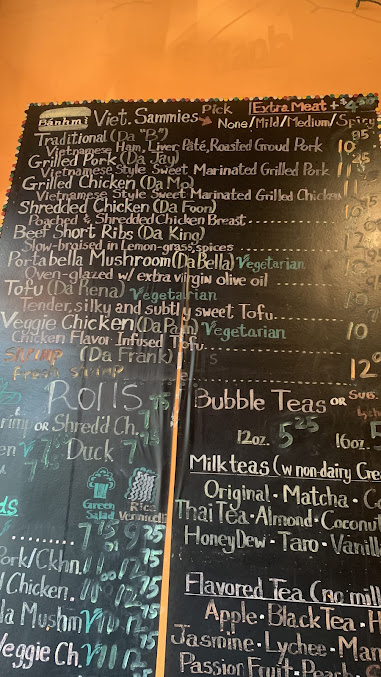 Bánhmì Viet. Sammies Pick Extra Meat + $4.50
None/Mild/Medium/Spicy
Traditional (Da "B")
Vietnamese Ham, Liver, Pâté, Roasted Groud Pork 10
Grilled Pork (Da Jay)
Vietnamese Style Sweet Marinated Grilled Pork 11
Grilled Chicken (Da Mo)
Vietnamese Style Sweet Marinated Grilled Chicken
Shredded Chicken (Da Foon)
Poached & Shredded Chicken Breast
Beef Short Ribs (Da King)
Slow-braised in Lemon-grass, spices
Portabella Mushroom (Da Bella) Vegetarian
Oven-glazed w/ extra virgin olive oil
Tofu (Da Rena) Vegetarian
Tender, silky and subtly sweet Tofu
Veggie Chicken (Da Pam) Vegetarian
Chicken Flavor Infused Tofu 10
Shrimp (Da Frank)
Fresh shrimp 12
Rolls
or Shred'd Ch. 7.75
V 7.45 Duck 7.75
Green Salad
Rice Vermicelli
7.75 9.25
Pork/Ckhn. 12.75
Chicken. 12.75
la Mushm V 12.75
Veggie Ch. V 11 12.75
Bubble Teas or Sub.
12oz. 5.25 16oz.
Milk teas (w non-dairy Cre
Original • Matcha •
Thai Tea • Almond • Coconut
HoneyDew • Taro • Vanill
Flavored Tea (no milk
Apple • Black Tea • H
Jasmine • Lychee • Man
Passion Fruit • Peach •